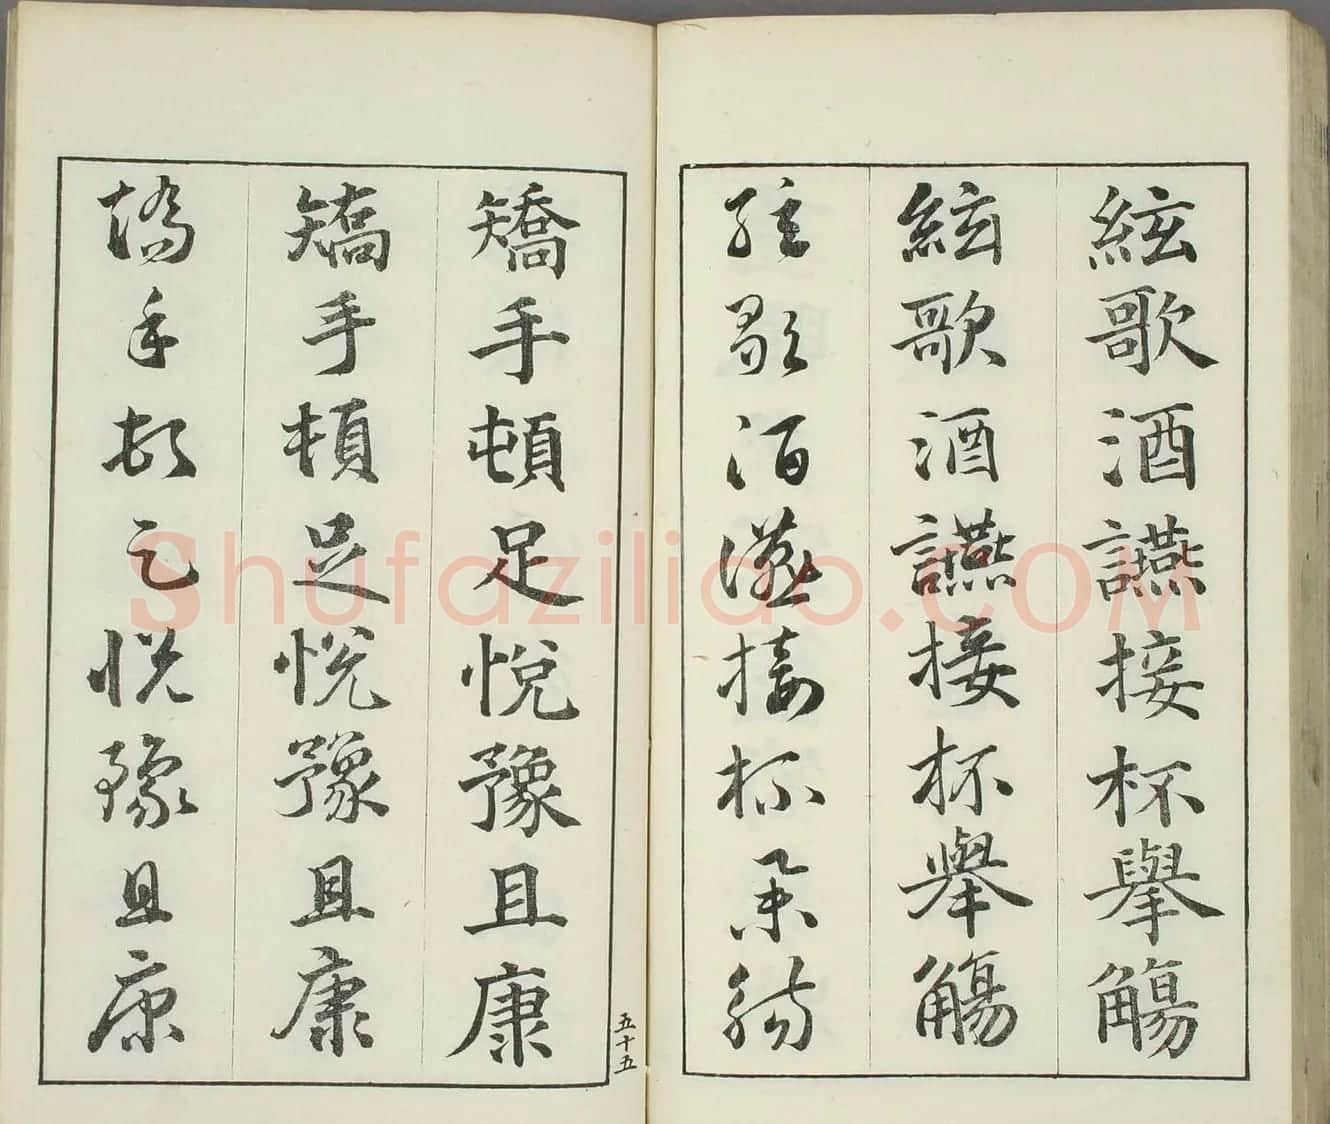 絃歌酒讌接杯擧觴
絃歌酒讌接杯舉觴
絃歌酒讌接杯舉觴
矯手頓足悅豫且康
矯手頓足悅豫且康
矯手頓足悅豫且康
五十五
Shufaziliao.COM